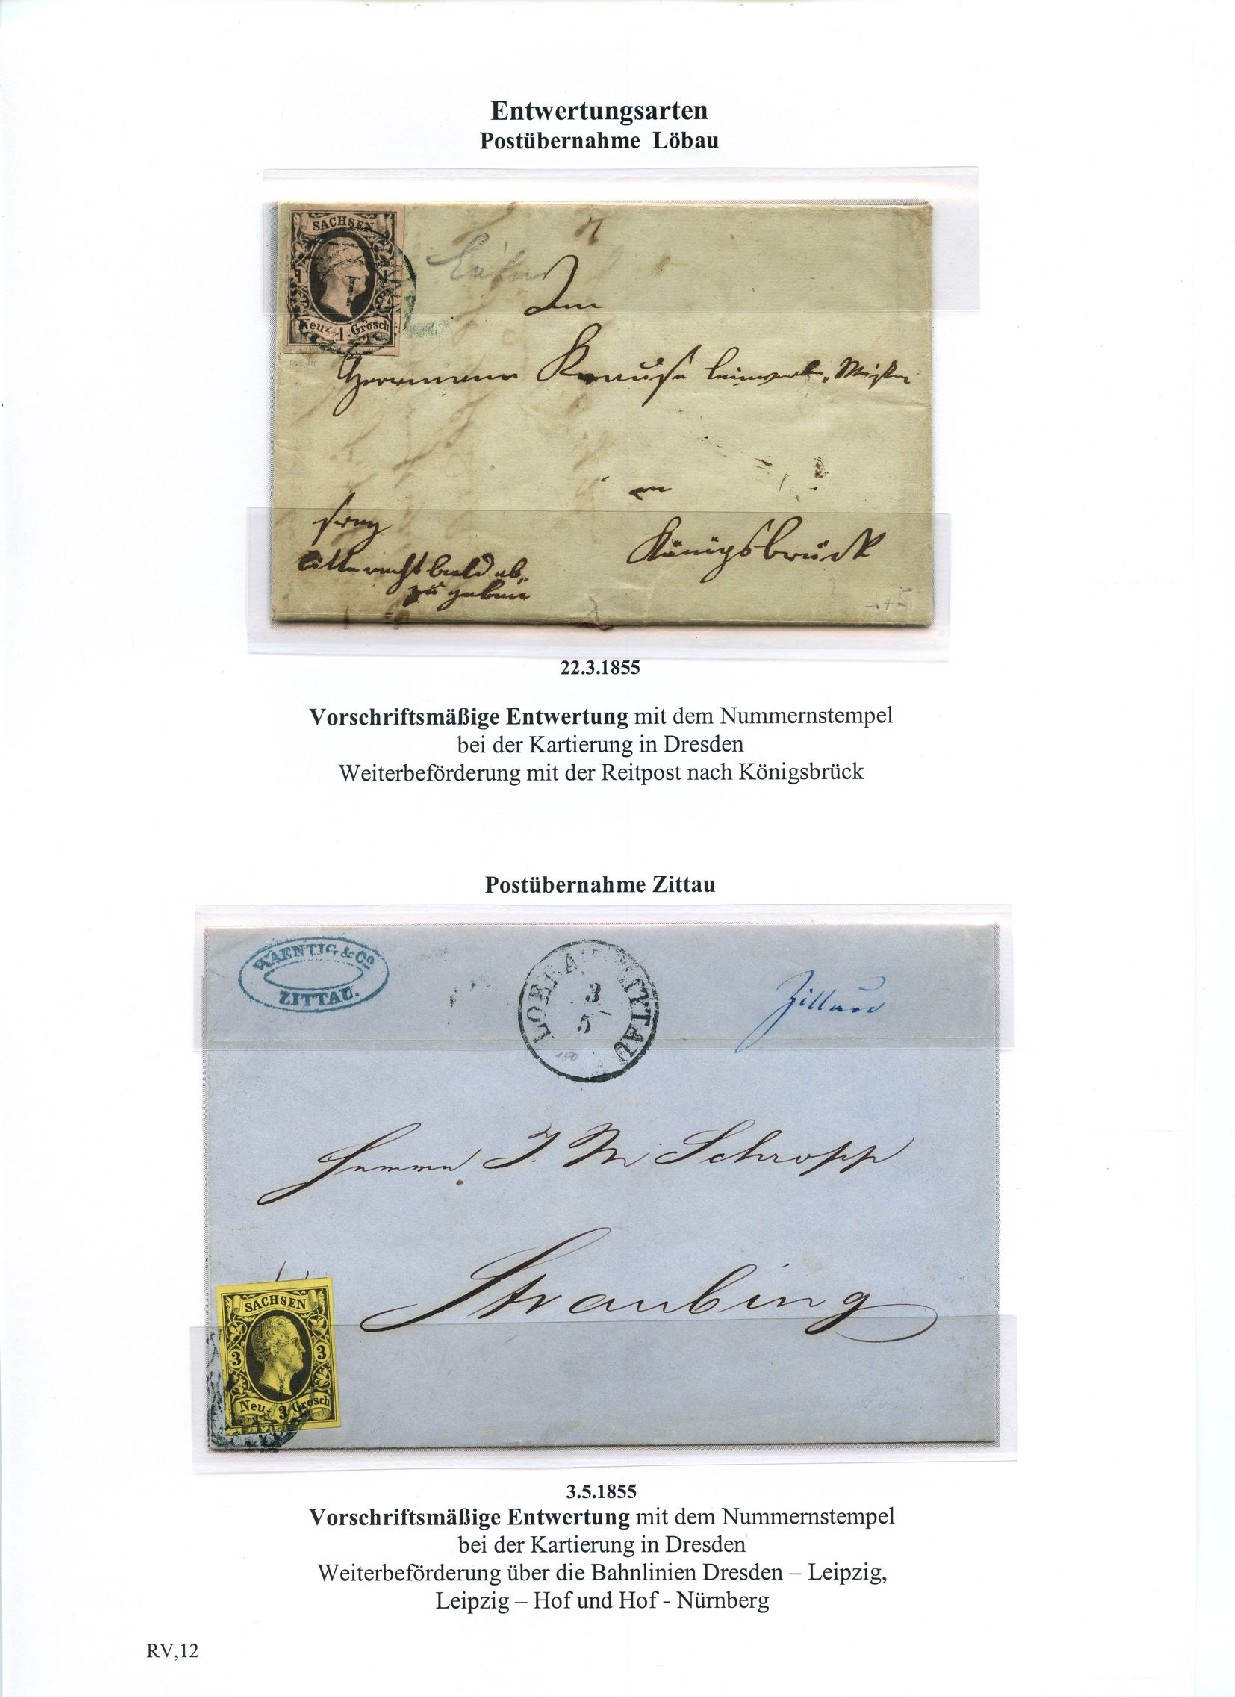 Entwertungsarten
Postübernahme Löbau
SACHSEN
Neu- 1 Grosch
Herrmann Krause
in
Königsbrück
franz
bald ab
zu geben
22.3.1855
Vorschriftsmäßige Entwertung mit dem Nummernstempel
bei der Kartierung in Dresden
Weiterbeförderung mit der Reitpost nach Königsbrück
Postübernahme Zittau
WAENTIG & Co
ZITTAU.
LOEBAU ZITTAU
3
5
Zittau
Herrn J. M. Schropp
Straubing
SACHSEN
3 3
Neu- 3 Grosch
3.5.1855
Vorschriftsmäßige Entwertung mit dem Nummernstempel
bei der Kartierung in Dresden
Weiterbeförderung über die Bahnlinien Dresden – Leipzig,
Leipzig – Hof und Hof - Nürnberg
RV,12